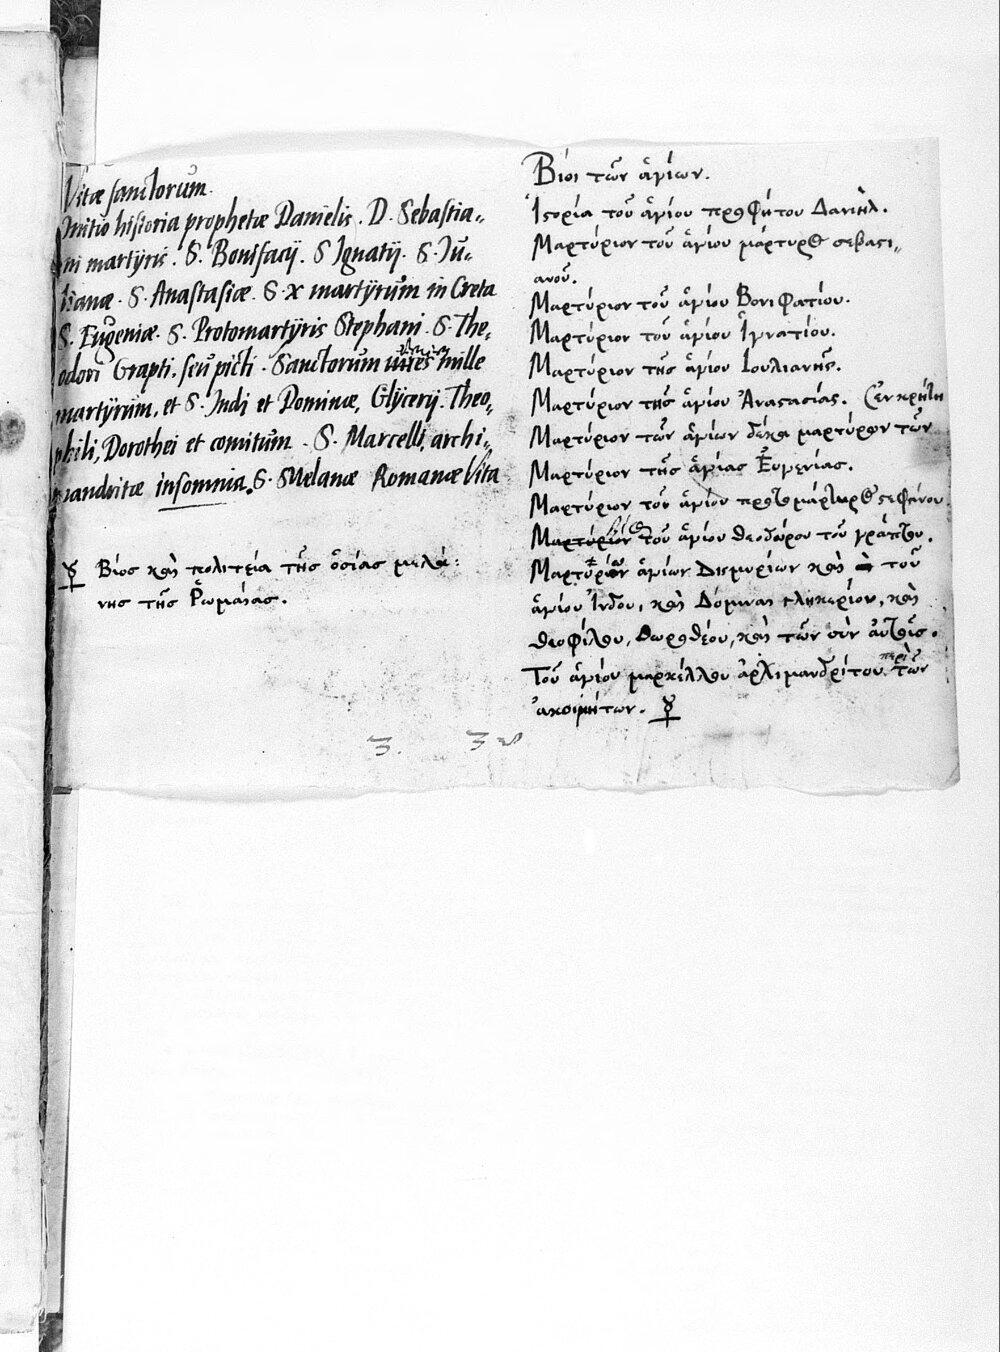 Vitæ sanctorum.
Initio historia prophetæ Danielis. D. Sebastia-
ni martyris. S. Bonifacij. S Ignatij. S. Ju-
lianæ. S. Anastasiæ. S. x martÿrum in Creta
S. Eugeniæ. S. Protomartÿris Stephani. S. The-
odori Grapti. seu picti. Sanctorum mille
martÿrum, et S. Indi et Domnæ, Glÿcerij. Theo-
phili, Dorothei et comitum. S. Marcelli, archi-
mandritæ insomnia. S. Melanæ Romanæ Vita
Βίος καὶ πολιτεία τῆς ὁσίας μελά:
νης τῆς Ῥωμαίας.
Βίοι τῶν ἁγίων.
Ἱστορία τοῦ ἁγίου προφήτου Δανιήλ.
Μαρτύριον τοῦ ἁγίου μάρτυρος σεβαστι-
ανοῦ.
Μαρτύριον τοῦ ἁγίου Βονιφατίου.
Μαρτύριον τοῦ ἁγίου Ἰγνατίου.
Μαρτύριον τῆς ἁγίου Ιουλιανῆς.
Μαρτύριον τῆς ἁγίου Ἀναστασίας. (ἐν κρήτη
Μαρτύριον τῶν ἁγίων δέκα μαρτύρων τῶν
Μαρτύριον τῆς ἁγίας Εὐγενίας.
Μαρτύριον τοῦ ἁγίου πρωτομάρτυρος στεφάνου.
Μαρτύριον βίος τοῦ ἁγίου θεοδώρου τοῦ γράπτου.
Μαρτύριον ἁγίων Δισμυρίων καὶ τοῦ
ἁγίου Ἴνδου, καὶ Δόμνας γλυκερίου, καὶ
θεοφίλου, δωροθέου, καὶ τῶν σὺν αὐτοῖς.
Τοῦ ἁγίου μαρκέλλου ἀρχιμανδρίτου περὶ τῶν
ἀκοιμήτων.
3. 3